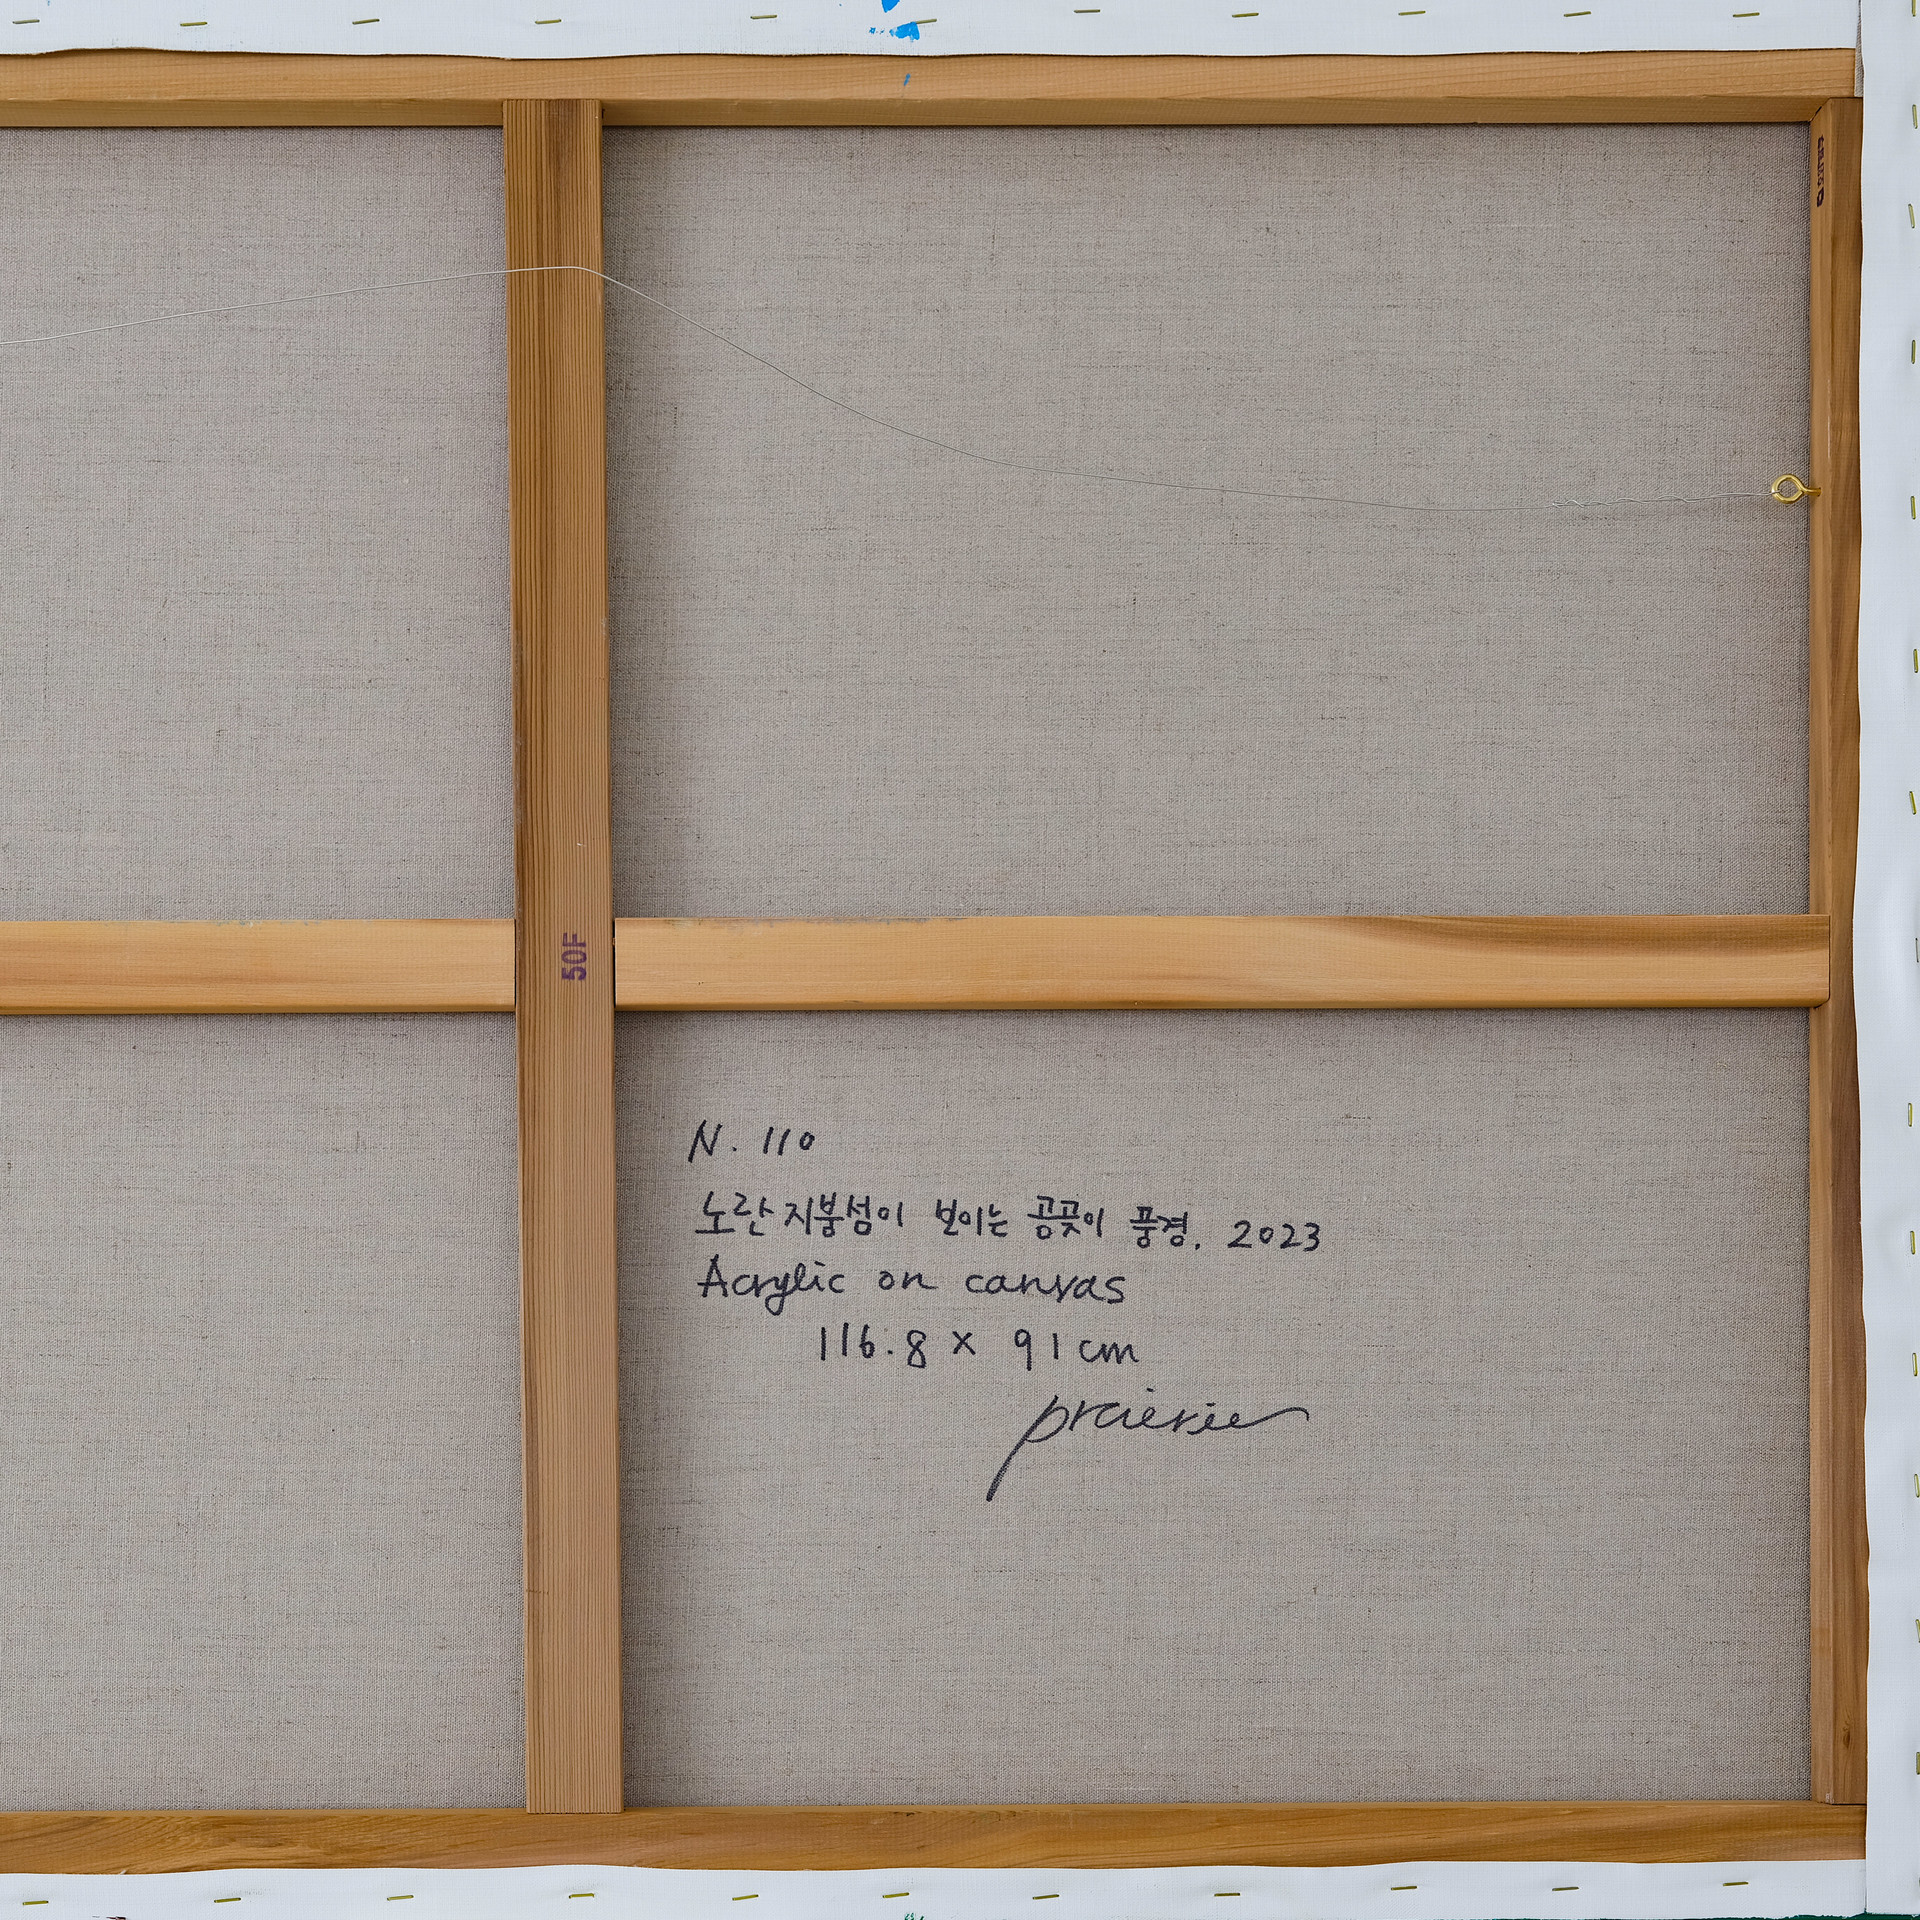 50F
N. 110
노란 지붕섬이 보이는 공곶이 풍경, 2023
Acrylic on canvas
116.8 x 91 cm
prairie